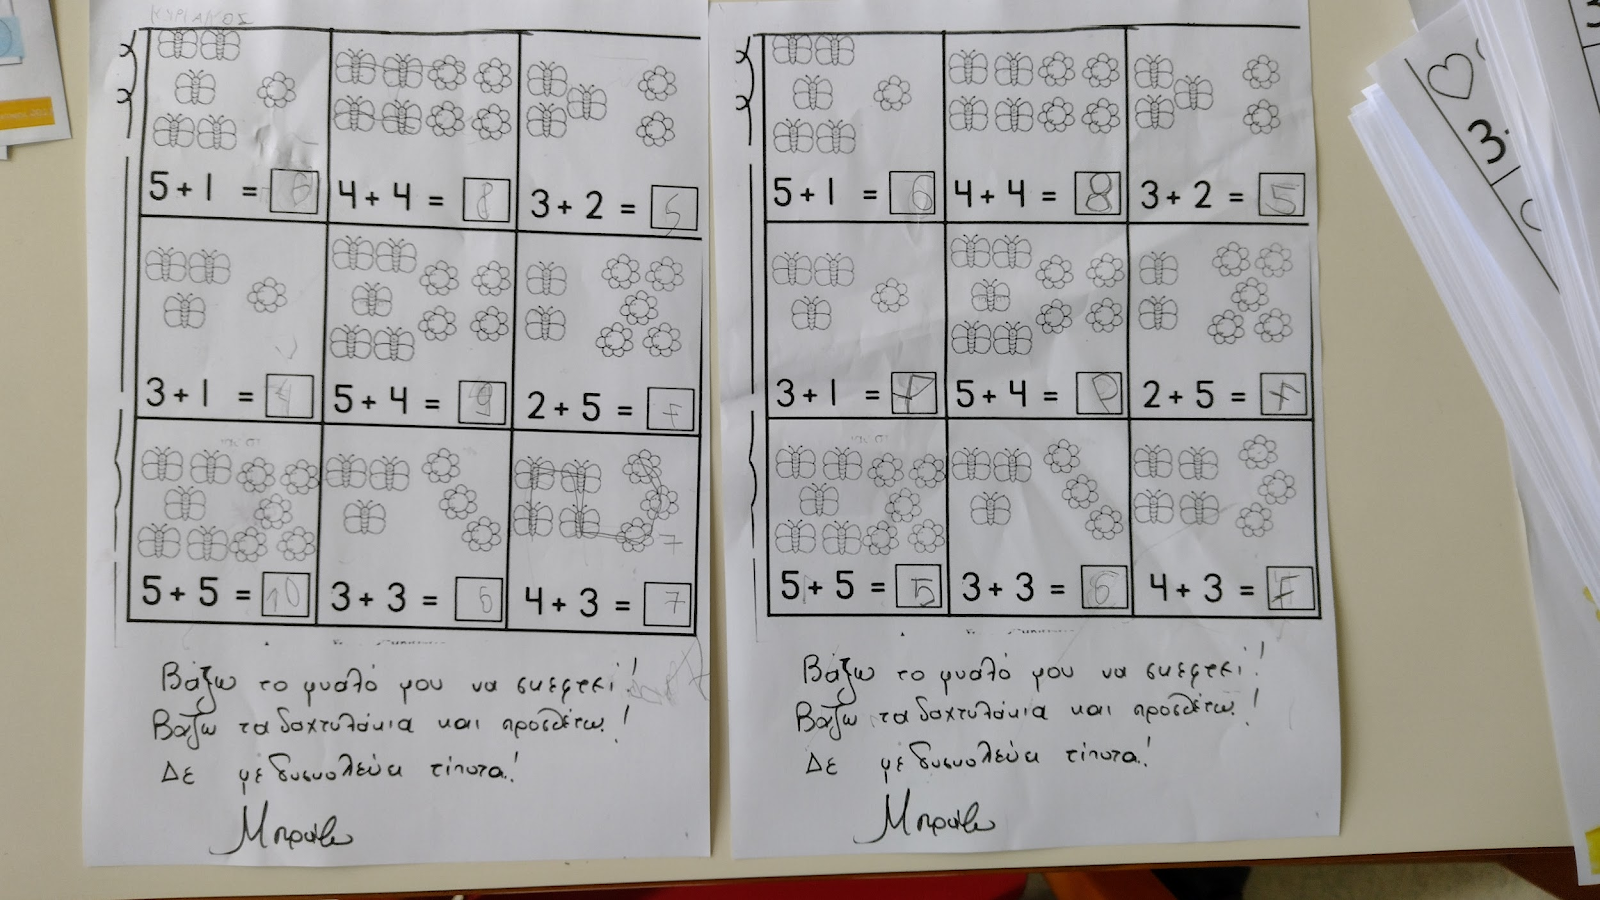 ΚΥΡΙΑΚΟΣ
5 + 1 = 6
4 + 4 = 8
3 + 2 = 5
3 + 1 = 4
5 + 4 = 9
2 + 5 = 7
7
5 + 5 = 10
3 + 3 = 6
4 + 3 = 7
Βάζω το μυαλό μου να σκεφτεί!
Βάζω τα δαχτυλάκια και προσθέτω!
Δε με δυσκολεύει τίποτα!
Μπράβο
5 + 1 = 6
4 + 4 = 8
3 + 2 = 5
3 + 1 = 4
5 + 4 =
2 + 5 = 7
5 + 5 = 5
3 + 3 = 6
4 + 3 = 7
Βάζω το μυαλό μου να σκεφτεί!
Βάζω τα δαχτυλάκια και προσθέτω!
Δε με δυσκολεύει τίποτα!
Μπράβο
3